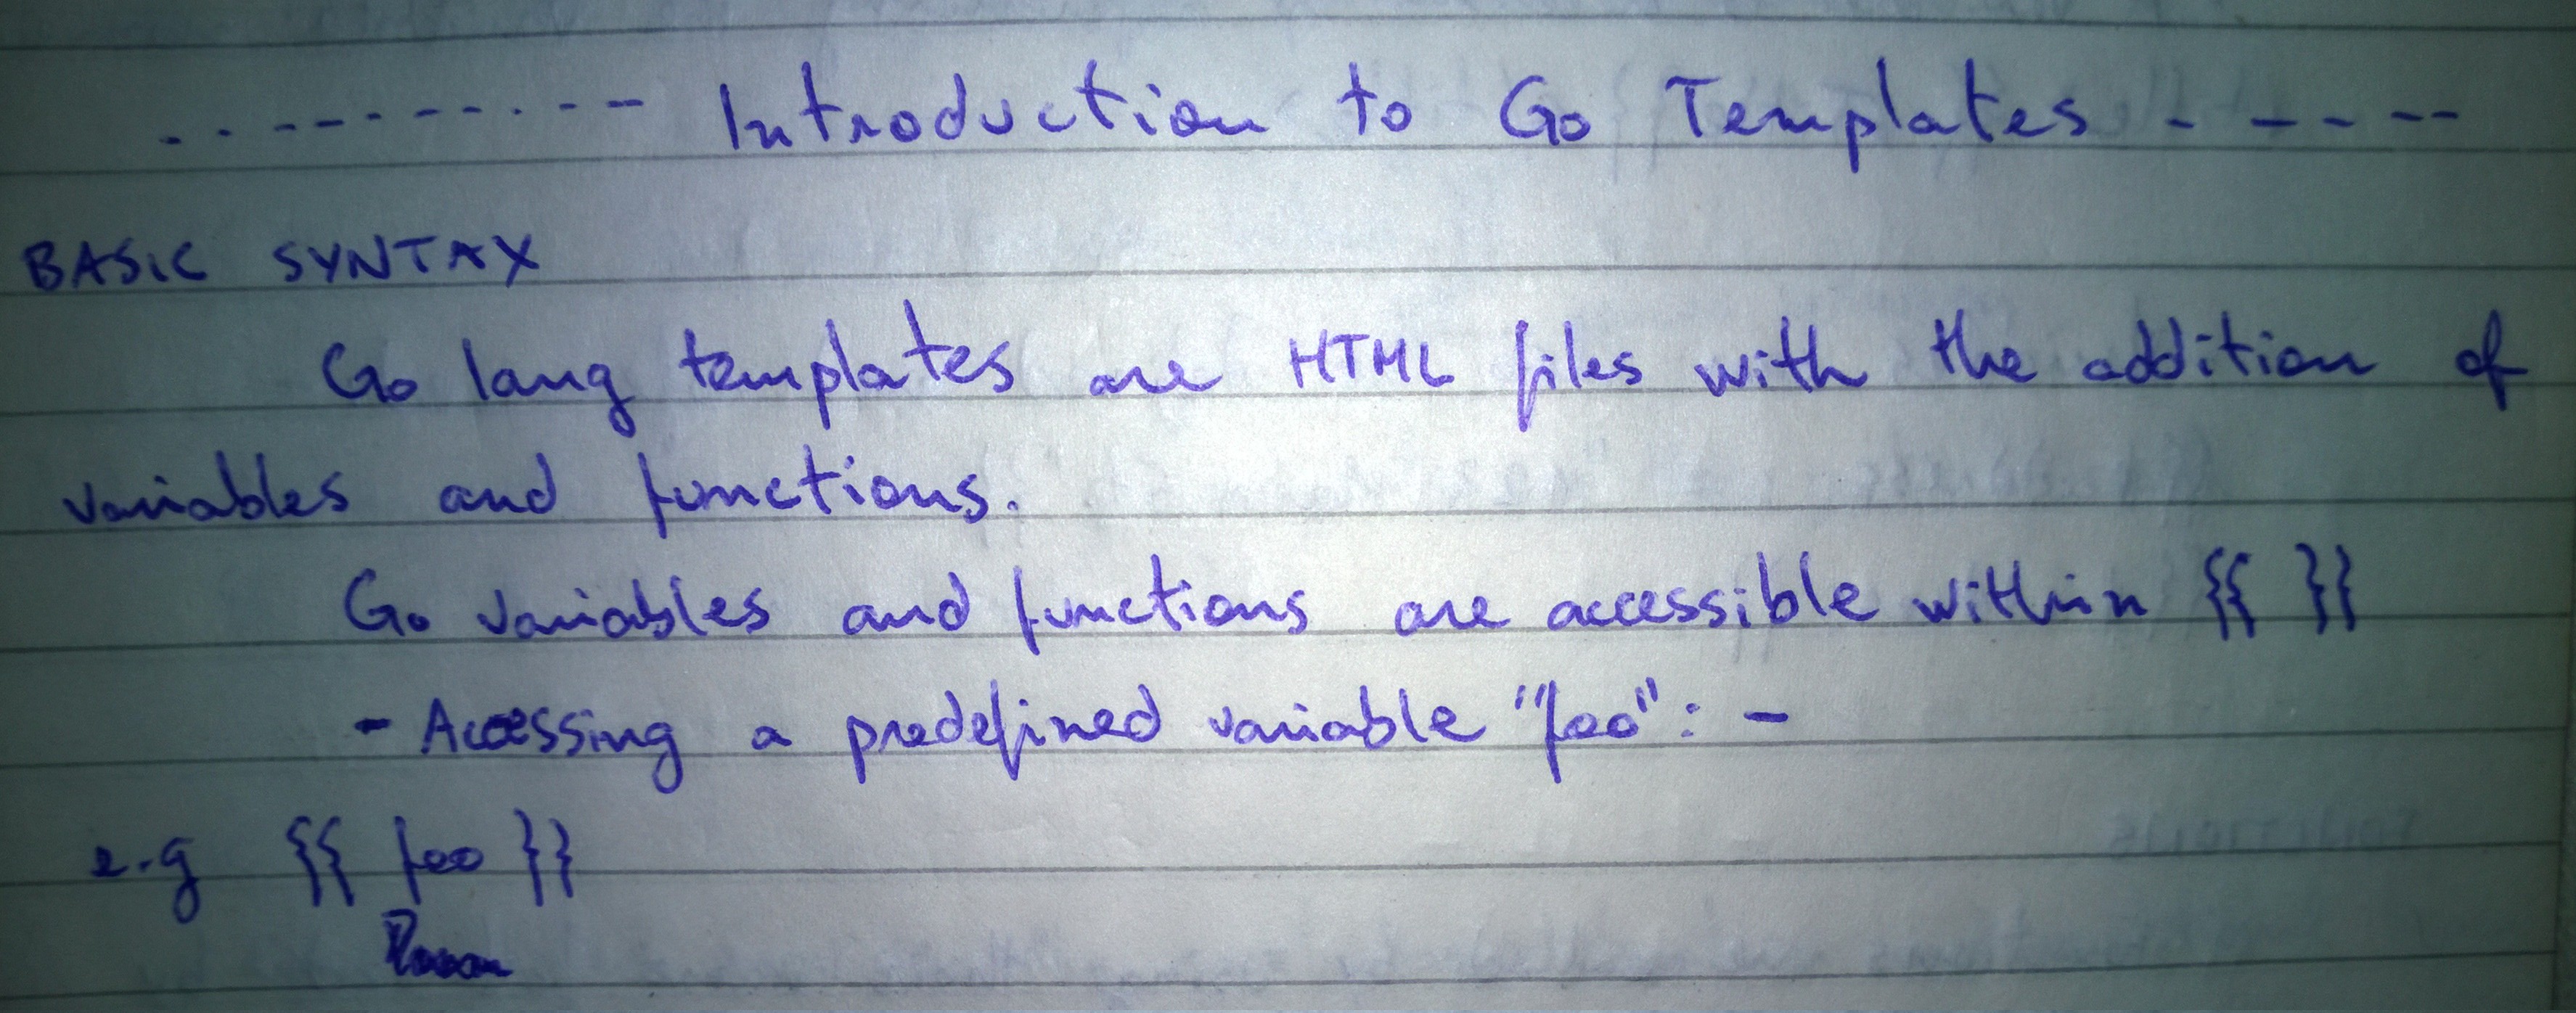 . . - - - - . - - Introduction to Go Templates - - - - - - -
BASIC SYNTAX
Go lang templates are HTML files with the addition of
variables and functions.
Go variables and functions are accessible within {{ }}
- Accessing a predefined variable "foo": -
e.g {{ foo }}